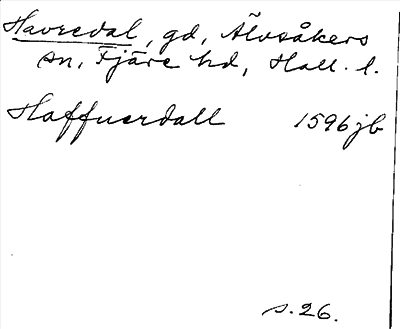 Havredal, gd, Älvsåkers
sn, Fjäre hd, Hall. l.
Haffuerdall 1596 jb
s. 26.